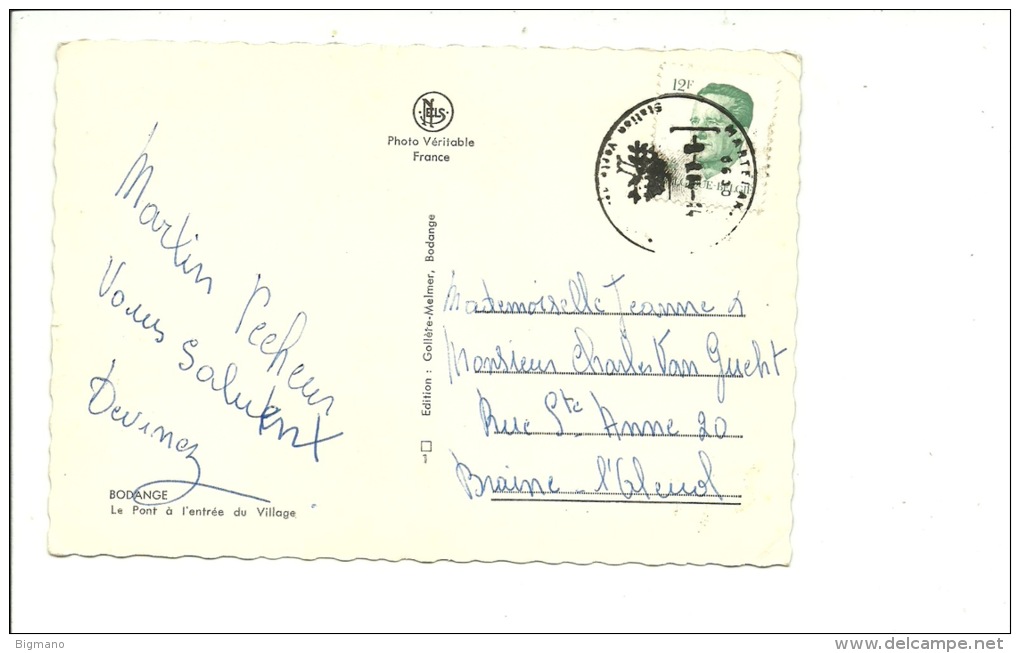 NELS
Photo Véritable
France
12F
BELGIQUE-BELGIË
MARTELAN.
6630
Station Verte
Martin Pecheur
Vous Saluent
Devinez
BODANGE
Le Pont à l'entrée du Village
Edition : Gollète-Melmer, Bodange
1
Mademoiselle Jeanne &
Monsieur Charles Van Gucht
Rue Ste Anne 20
Braine-l'Alleud
Bigmano
www.delcampe.net